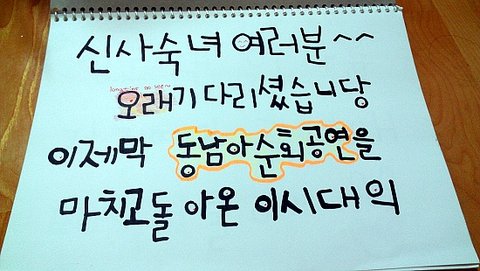 신사숙녀 여러분^^
오래기다리셨습니당
이제막 동남아순회공연을
마치고돌아온 이시대의